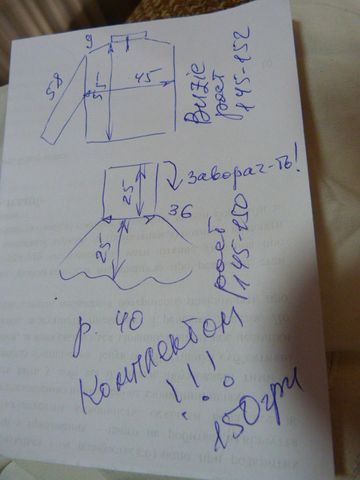 9
58
55
45
Buzie
рост
145-152
25
заворач-ть!
36
25
рост
145-150
р. 40
Комплектом
!!!
150грн